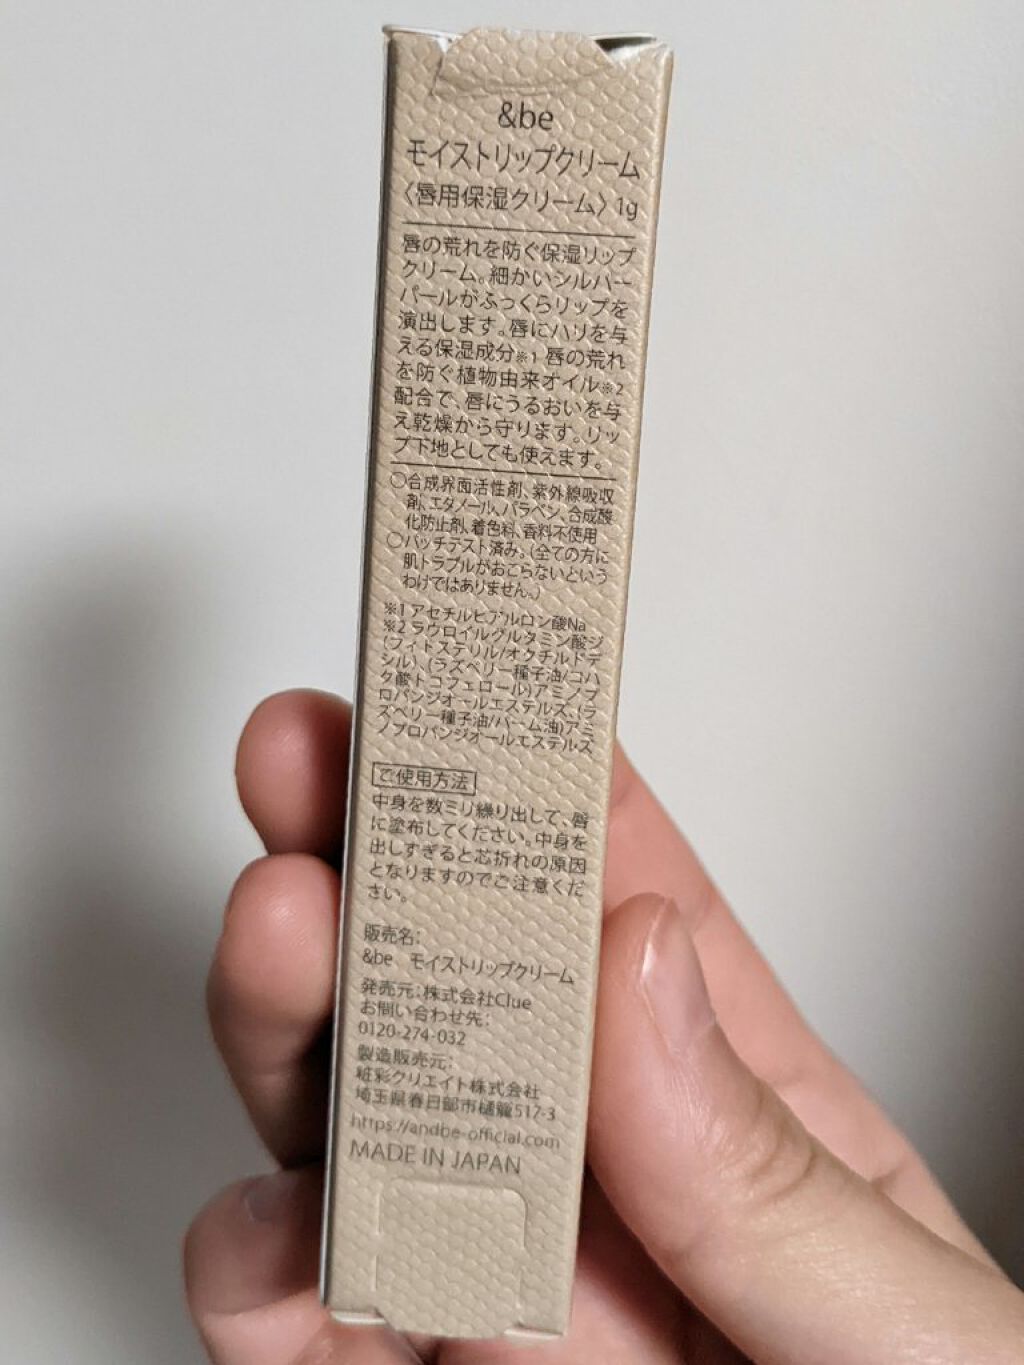 &be
モイストリップクリーム
〈唇用保湿クリーム〉1g
唇の荒れを防ぐ保湿リップ
クリーム。細かいシルバー
パールがふっくらリップを
演出します。唇にハリを与
える保湿成分※1 唇の荒れ
を防ぐ植物由来オイル※2
配合で、唇にうるおいを与
え乾燥から守ります。リッ
プ下地としても使えます。
○合成界面活性剤、紫外線吸収
剤、エタノール、パラベン、合成酸
化防止剤、着色料、香料不使用
○パッチテスト済み。(全ての方に
肌トラブルがおこらないという
わけではありません。)
※1 アセチルヒアルロン酸Na
※2 ラウロイルグルタミン酸ジ
(フィトステリル/オクチルドデ
シル)、(ラズベリー種子油/コハ
ク酸トコフェロール)アミノプ
ロパンジオールエステルズ、(ラ
ズベリー種子油/パーム油)アミ
ノプロパンジオールエステルズ
ご使用方法
中身を数ミリ繰り出して、唇
に塗布してください。中身を
出しすぎると芯折れの原因
となりますのでご注意くだ
さい。
販売名：
&be モイストリップクリーム
発売元：株式会社Clue
お問い合わせ先：
0120-274-032
製造販売元：
粧彩クリエイト株式会社
埼玉県春日部市樋籠517-3
https://andbe-official.com
MADE IN JAPAN